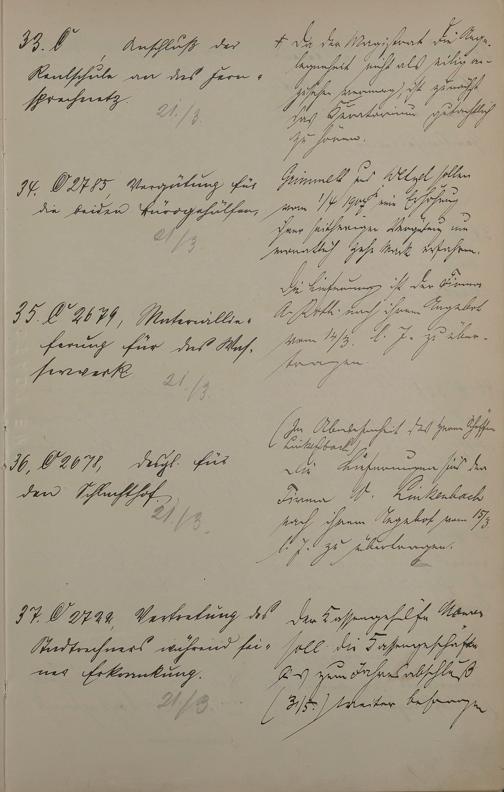 33. C , Anschluß der
Realschule an das Fern-
sprechnetz.
21./3.
* Da der Magistrat die Ange-
legenheit nicht als eilig an-
zusehen vermag, ist zunächst
das Kuratorium gutachtlich
zu hören.
34. C 2785 Vergütung für
die beiden Bürogehülfen.
21/3
Grimmell und Wetzel sollen
vom 1/4 eine Erhöhung
ihrer seitherigen Vergütung um
monatlich zehn Mark erfahren.
35. C 2679, Materiallie-
ferung für das Was-
serwerk
21./3.
Die Lieferung ist der Firma
A. nach ihrem Angebot
vom 14/3. l. J. zu über-
tragen.
36, C 2678, desgl. für
den Schlachthof.
21/3.
(In Abwesenheit des Herrn Schöffen
Linkenbach)
Die Lieferungen sind der
Firma W. Linkenbach
nach ihrem Angebot vom 15/3
l. J. zu übertragen.
37. C 2722, Vertretung des
Stadtrechners während sei-
ner Erkrankung.
21/3.
Der Kassengehilfe
soll die Kassengeschäfte
bis zum Jahresabschluß
(31/5.) weiter besorgen